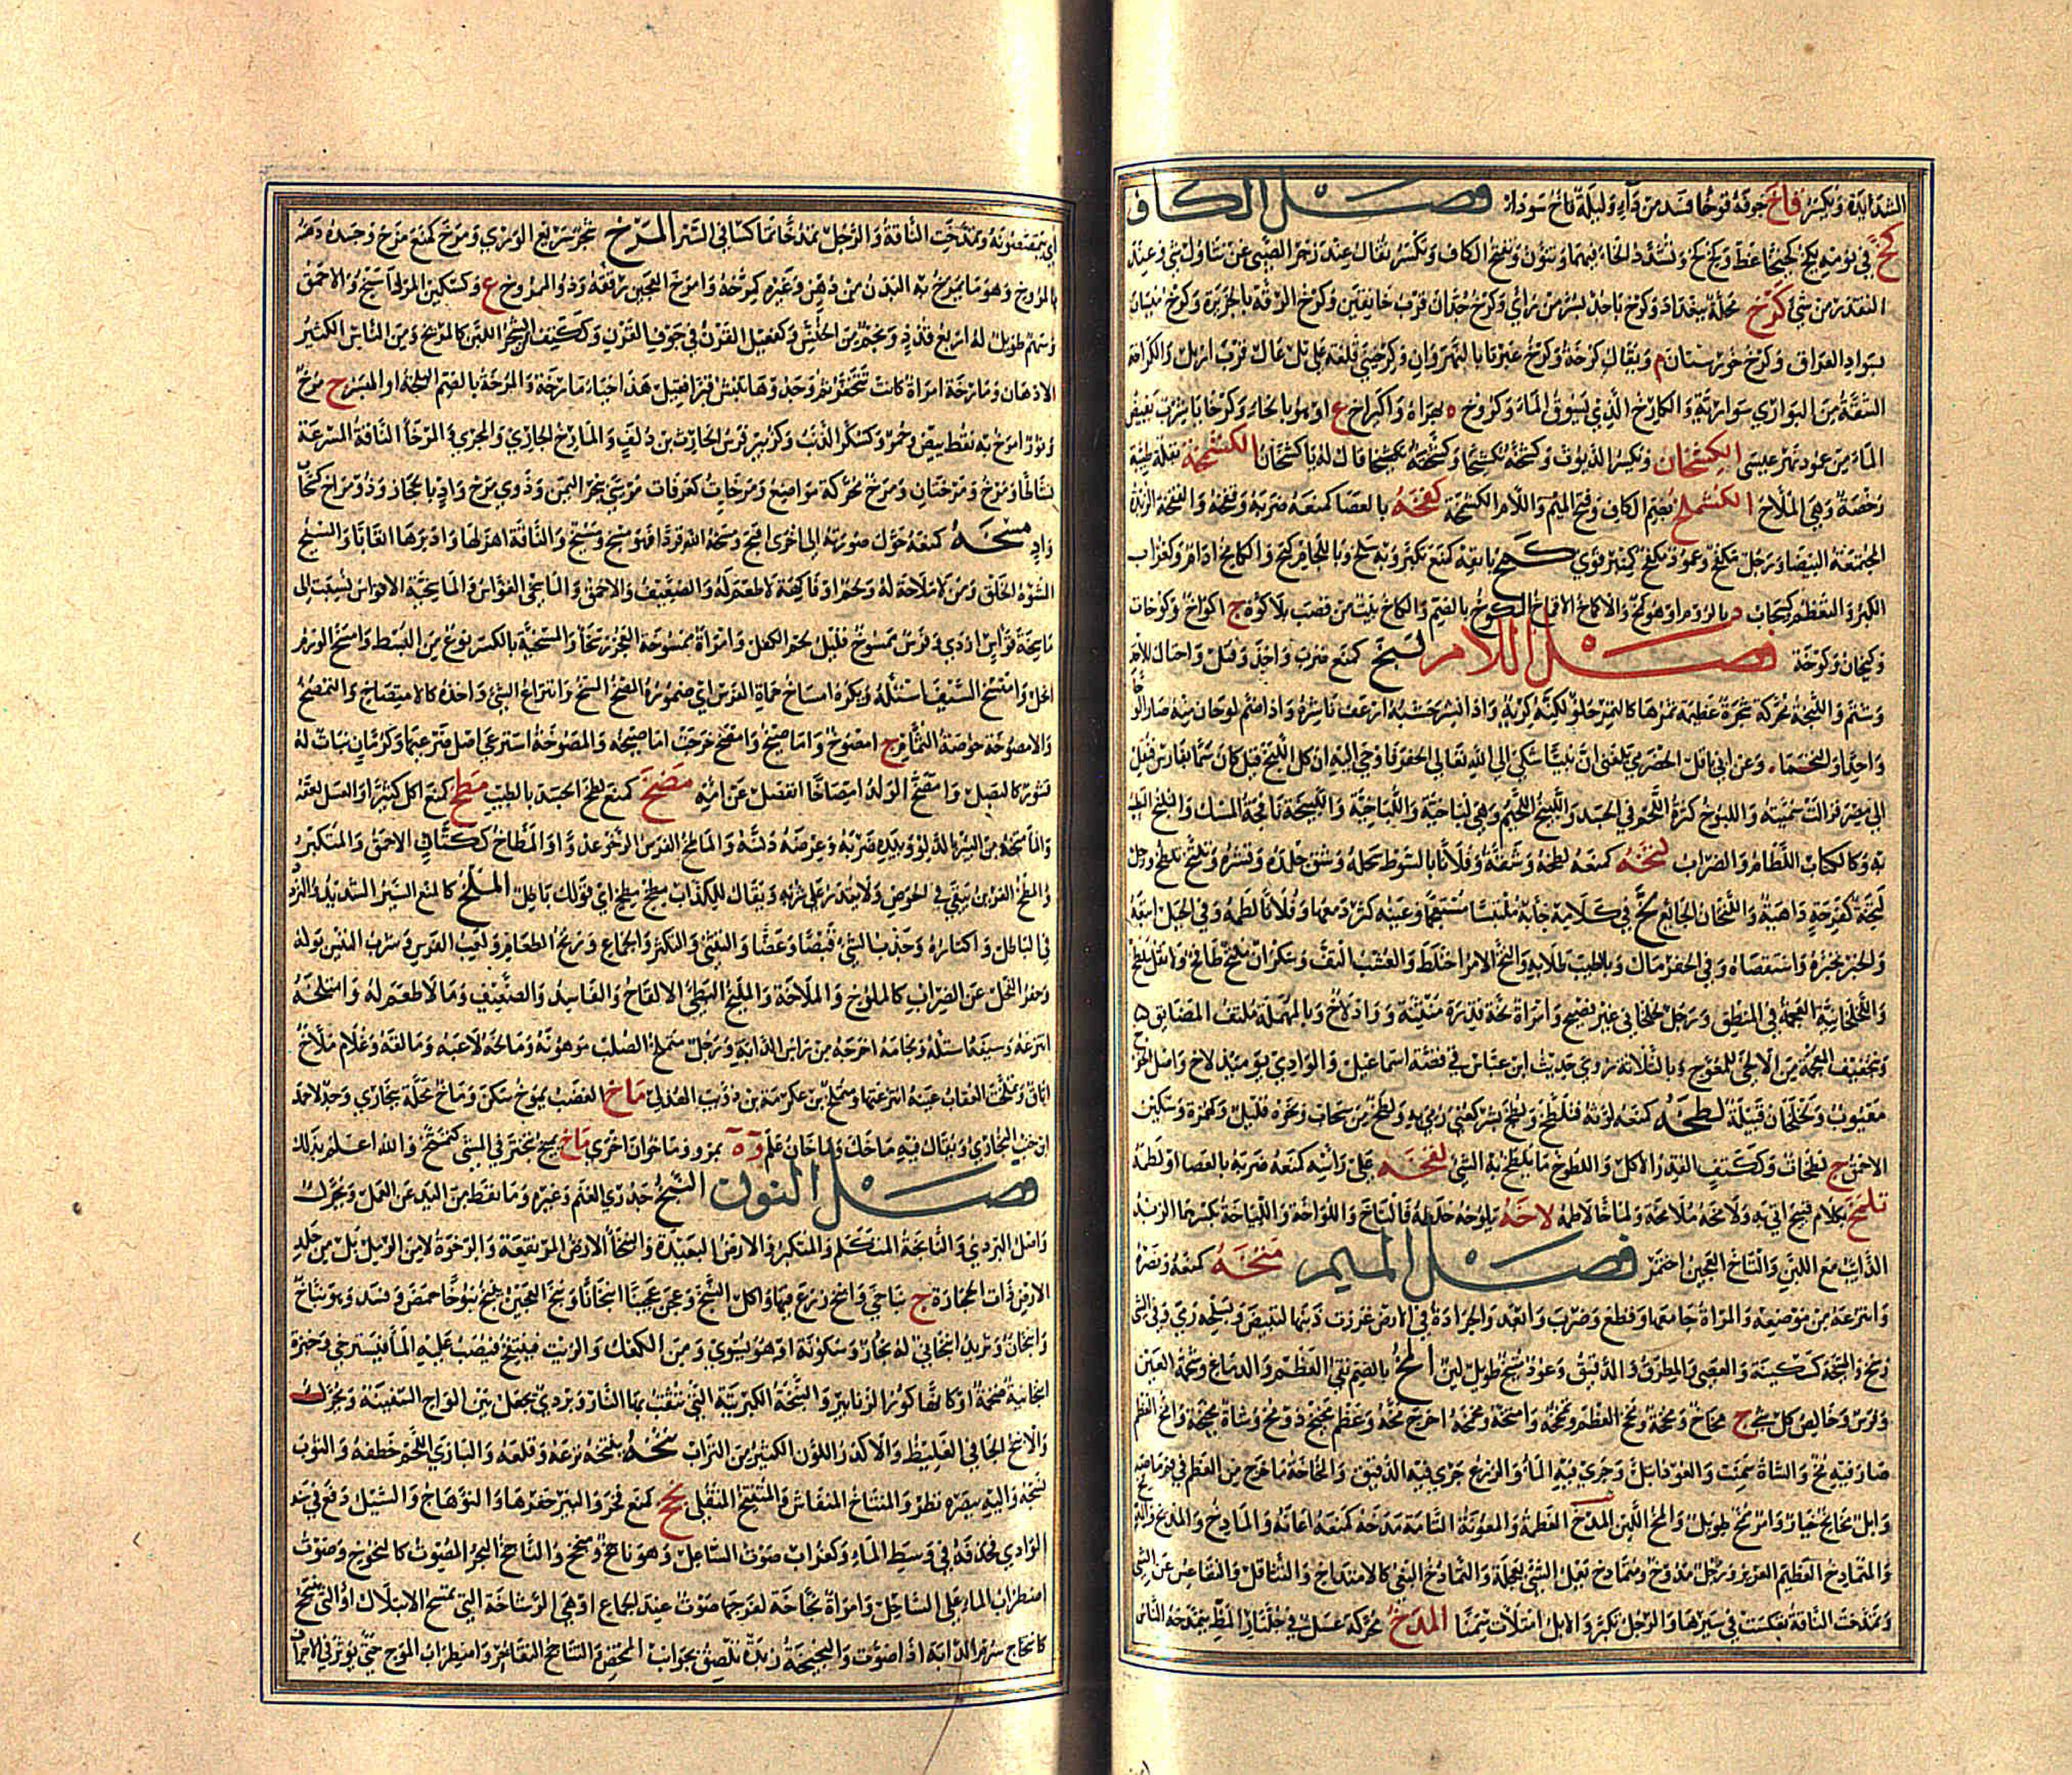 الشدائد ويكسر فاخ جوفه قوخا فسد من داء وليلة فاخ سوداء فصل الكاف
كخ في نومه يكخ كخيخا غط وكخ كخ وتشدد الخاء فيهما وتنون وتفتح الكاف وتكسر يقال عند زجر الصبي عن تناول شئ وعند
التقذر من شئ كرخ محلة ببغداد وكرخ باجدا بسر من رأى وكرخ جدان قرب خانقين وكرخ الرقة بالجزيرة وكرخ ميسان
بسواد العراق وكرخ خوزستان م ويقال كرخة وكرخ عبرتا بالنهروان وكرخيني قلعة على تل عال قرب اربل والكراخة
الشقة من البواري سوادية والكارخ الذي يسوق الماء وكروخ ة بهراة واكيراخ ع او هو بالحاء وكرخايا شرب يفيض
الماء من عمود نهر عيسى الكشخان ويكسر الديوث وكشخه تكشيخا وكشخنه قال له يا كشخان الكشمخة بقلة طيبة
رخصة وهي الملاح الكشملخ بضم الكاف وفتح الميم واللام الكشمخة كفخه بالعصا كمنعه ضربه والكفخة الزبدة
المجتمعة البيضاء ورجل مكفخ وعمود مكفخ كمنبر قوي كمخ بانفه كمنع تكبر وبه سلح وباللجام كبح والكامخ ادام وكغراب
الكبر والتعظم وكسحاب د بالروم او هو كمخ والاكماخ الاقماح الكوخ بالضم والكاخ بيت من قصب بلا كوة ج اكواخ وكوخان
وكيخان وكوخة فصل اللام لبخ كمنع ضرب واخذ وقتل واحتال للاخذ
وشتم واللبخة محركة شجرة عظيمة ثمرها كالتمر حلو لكنه كريه واذا نشر خشبه ارعف ناشره واذا ضم لوحان منه صارا لوحا
واحدا والتحما وعن ابي باقل الحضرمي بلغني ان نبيا شكى الى الله تعالى الحفر فاوحي اليه ان كل اللبخ قيل كان سما بفارس فنقل
الى مصر فزالت سميته واللبوخ كثرة اللحم في الجسد واللبيخ اللحيم وهي لباخية واللباخية واللبيخة نافجة المسك وتلبخ تطيب
به وكالكتاب اللطام والضراب لتخه كمنعه لطخه وشقه وفلانا بالسوط سحله وشق جلده وقشره وتلتخ تلطخ ورجل
لتخة كفرحة داهية واللتخان الجائع لخ في كلامه جاء به ملتبسا مستعجما وعينه كثر دمعها وفلانا لطمه وفي الحبل اتبعه
والخبر تخبره واستقصاه وفي الحفر مال وبالطيب طلا به والتخ الامر اختلط والعشب التف وسكران ملتخ طافح ولا تقل ملطخ
واللخلخانية العجمة في المنطق ورجل لخلخاني غير فصيح وامراة لخة قذرة منتنة وواد لاخ وبالمهملة ملتف المضايق
وتخفيف المعجمة من الالخى للمعوج وبالثلاثة روي حديث ابن عباس في قصة اسماعيل والوادي يومئذ لاخ واصل لخوخ
معيوب ولخلخان قبيلة لطخه كمنعه لوثه فتلطخ ولطخ بشر كعني رمي به ولطخ من سحاب ونحوه قليل وكهمزة وسكين
الاحمق ج لطخات وككتيف القذر الاكل واللطوخ ما يلطخ به الشئ لفخه على راسه كمنعه ضربه بالعصا او لطمه
تلمخ بكلام قبيح اتى به ولامخه ملامخة ولماخا لاطمه لاخه يلوخه خلطه فالتاخ واللواخة واللياخة بكسرهما الزبد
الذائب مع اللبن والتاخ العجين اختمر فصل الميم متخه كمنعه ونصره
وانتزعه من موضعه والمراة جامعها وقطع وضرب وابعد والجرادة في الارض غرزت ذنبها لتبيض وبسلحه رمى وفي الشئ
رسخ والمتيخة كسكينة والعصى والمطرق الدقيق وعود متيخ طويل لين المخ بالضم نقي العظم والدماغ وشحمة العين
وفرس وخالص كل شئ ج مخاخ ومخخة ومخ العظم وتمخخه وامتخه ومخمخه اخرج مخه وعظم مخيخ ذو مخ وشاة مخيخة وامخ العظم
صار فيه مخ والشاة سمنت والعود ابتل وجرى فيه الماء والزرع جرى فيه الدقيق والمخاخة ما خرج من العظم في فم ماصه
وابل مخائخ خيار وامر مخ طويل والمخ اللين المدخ العظمة والمعونة التامة مدخه كمنعه اعانه والمادخ والمديخ
والمتمادخ العظيم العزيز ورجل مدوخ ومتمادخ يعمل الشئ بعجلة والتمادخ البغي كالامتداخ والتثاقل والتقاعس عن الشئ
وتمدخت الناقة تعكست في سيرها والرجل تكبر والابل امتلات سمنا المذخ محركة عسل في جلنار المظ يتمذخه الناس
اي يتمصصونه وتمذخت الناقة والرجل تمذخا تماكسا في السير المرخ شجر سريع الوري ومرخ كمنع مزح وجسده دهنه
بالمروخ وهو ما يمرخ به البدن من دهن وغيره كمرخه وامرخ العجين رققه وذو الممروخ ع وكسكين المرداسنج والاحمق
وسهم طويل له اربع قذذ ونجم من الخنس وكفعيل القرن في جوف القرن وككتيف الشجر اللين كالمريخ ومن الناس الكثير
الادهان ومارخة امراة كانت تتخفر ثم وجدوها تنبش قبرا فقيل هذا حياء مارخة والمرخة بالضم البلحة او البسر ج مرخ
وثور امرخ به نقط بيض وحمر وكسكر الذئب وكزبير فرس الحارث بن دلف والمارخ الجاري والمجري والمرخاء الناقة المسرعة
نشاطا ومرخ ومرختان ومرخ محركة مواضع ومرخات كعرفات مرسى ببحر اليمن وذو مرخ واد بالحجاز وذو مراخ كغراب
واد مسخه كمنعه حول صورته الى اخرى اقبح ومسخه الله قردا فهو مسخ ومسيخ والناقة اهزلها وادبرها اتعابا والمسيخ
المشوه الخلق ومن لا ملاحة له ولحم او فاكهة لا طعم له والضعيف والاحمق والماسخي القواس والماسخية الاقواس نسبت الى
ماسخة قواس ازدي وفرس ممسوخ قليل لحم الكفل وامراة ممسوخة العجز رسحاء والمسخية بالكسر نوع من البسط وامسخ الورم
انحل وامتسخ السيف استله ويكره امساخ حماة الفرس اي ضموره المصخ المسخ وانتزاع الشئ واخذه كالامتصاخ والتمصخ
والامصوخة خوصة الثمام ج امصوخ واماصيخ وامصخ خرجت اماصيخه والمصوخة استرخى اصل ضرعها وكرمان نبات له
قشور كالبصل وامصخ الولد امصاخا انفصل عن امه مضخ كمنع لطخ الجسد بالطيب مطخ كمنع اكل كثيرا والعسل لعقه
والماء متخه من البئر بالدلو وبيده ضربه وعرضه دنسه والماطخ الفرس الرخو عدوا والمطاخ ككتان الاحمق والمتكبر
والمطخ الغرين يبقى في الحوض ولا يقدر على شربه ويقال للكذاب مطخ مطخ اي قولك باطل الملخ كالمنع السير الشديد والتردد
في الباطل واكثاره وجذب الشئ قبضا وعضا والتثني والتكسر والجماع وزنخ الطعام ولعب الفرس وشرب التيس بوله
وجفر الفحل عن الضراب كالملوخ والملاخة والمليخ البطئ الالقاح والفاسد والضعيف وما لا طعم له وامتلخه
انتزعه وسيفه استله ولجامه اخرجه من راس الدابة ورجل متملخ الصلب موهونه ومالخه لاعبه ومالقه وغلام ملاخ
اباق وتملخت العقاب عينه انتزعتها وتملخ بن عكرمة بن ذؤيب الهذلي ماخ الغضب يموخ سكن وماخ محلة ببخارى وجد لاحمد
ابن خنب البخاري ويقال فيه ماخك وماخان علم وة بمرو وماخوان اخرى ماخ يميخ تبختر في المشي كتميخ والله اعلم بذلك
فصل النون النبخ جدري الغنم وغيره وما نفط من اليد عن العمل ويحرك
واصل البردي والنابخة المتكلم والمتكبر والارض البعيدة والنبخاء الارض المرتفعة والرخوة لا من الرمل بل من جلد
الارض ذات الحجارة ج نباخى وانبخ زرع فيها واكل النبخ وعجن عجينا انبخانا ونبخ العجين ينبخ نبوخا حمض وفسد وهو نباخ
وانبخان وثريد انبخاني له بخار وسكونة او هو يسوى ومن الكعك والزيت فينتفخ فيصب عليه الماء فيسترخي وخبزة
انبخانية ضخمة او كانها كور الزنابير والنبخة الكبريتة التي تثقب بها النار وبردي يجعل بين الواح السفينة ويحرك
والانبخ الجافي الغليظ والاكدر اللون الكثير من التراب نتخه ينتخه نزعه وقلعه والبازي اللحم خطفه والثوب
نسجه واليه ببصره نظر والمنتاخ المنقاش والمتنتخ المتفلي نجخ كمنع فخر والبئر حفرها والنؤ هاج والسيل دفع في سند
الوادي فحذفه في وسط الماء وكغراب صوت الساعل وهو ناجخ ومنجخ والناجخ البحر المصوت كالنجوخ وصوت
اضطراب الماء على الساحل وامراة نجاخة لفرجها صوت عند الجماع او هي الرشاحة التي تمسح الابتلال او التي تنتجخ
كانتجاخ سرم الدابة اذا صوت والنجيخة زبدة تلصق بجوانب الممخض والتناجخ التفاخر واضطراب الموج حتى يؤثر في الاجراف